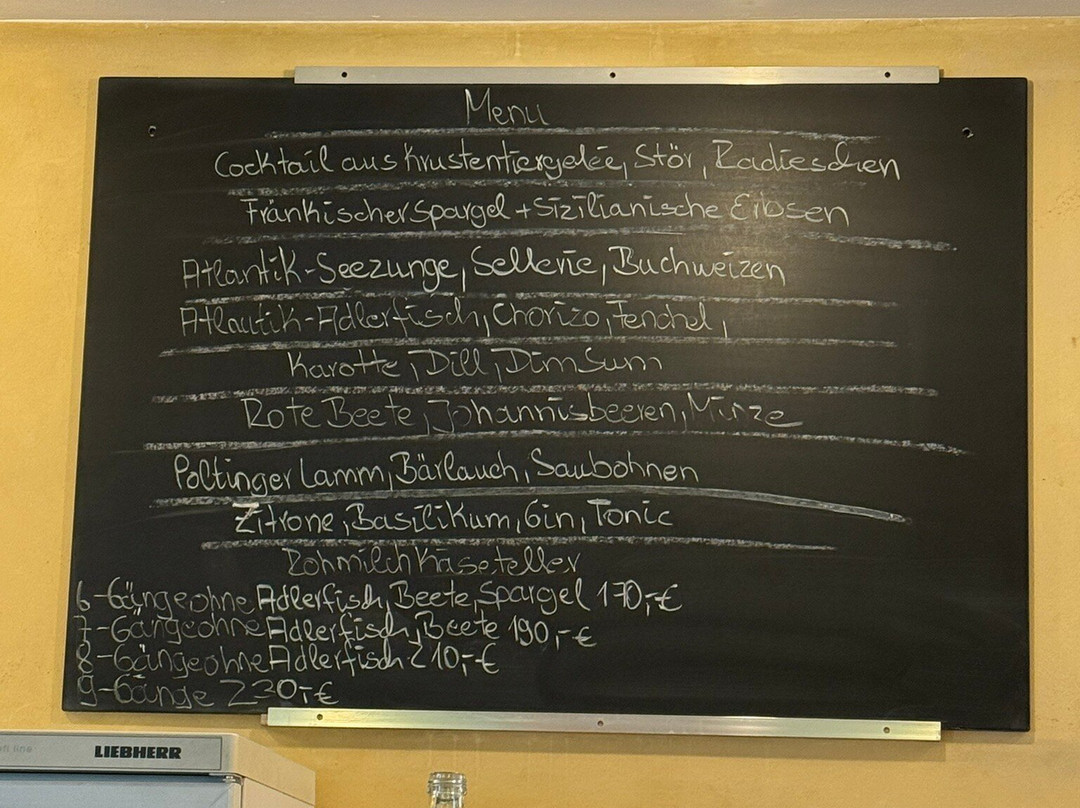 Menu
Cocktail aus Krustentiergelée, Stör, Radieschen
Fränkischer Spargel + Sizilianische Erbsen
Atlantik-Seezunge, Sellerie, Buchweizen
Atlantik-Adlerfisch, Chorizo, Fenchel,
Karotte, Dill, Dim Sum
Rote Beete, Johannisbeeren, Minze
Poltinger Lamm, Bärlauch, Saubohnen
Zitrone, Basilikum, Gin, Tonic
Rohmilchkäseteller
6-Gänge ohne Adlerfisch, Beete, Spargel 170,-€
7-Gänge ohne Adlerfisch, Beete 190,-€
8-Gänge ohne Adlerfisch 210,-€
9-Gänge 230,-€
line LIEBHERR